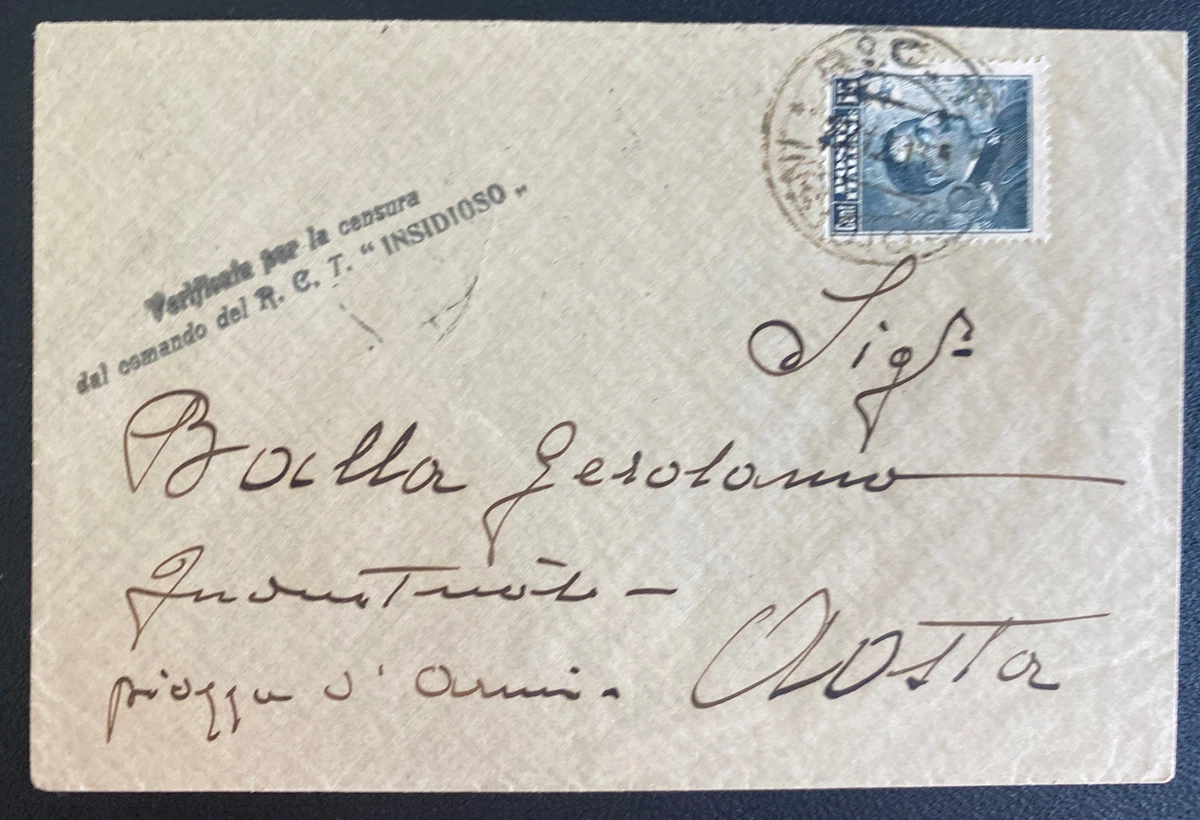 Verificata per la censura
dal comando del R. C. T. “ INSIDIOSO „
Sigr
Balla Gerolamo
Industriale -
piazza d' Armi -
Aosta